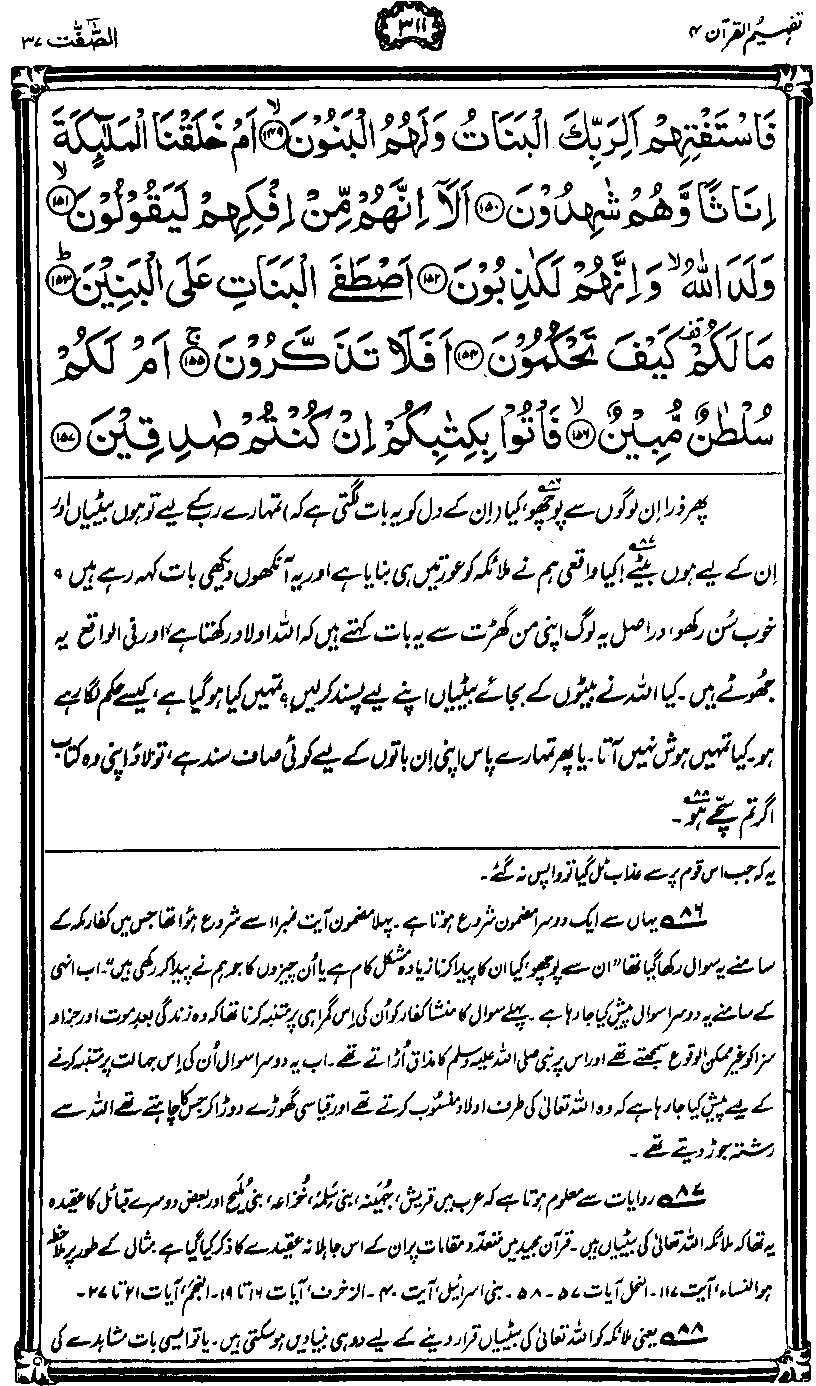 تفہیم القرآن ۴
۳۱۱
الصّٰفّٰت ۳۷
فَاسْتَفْتِهِمْ اَلِرَبِّكَ الْبَنَاتُ وَلَهُمُ الْبَنُوْنَ ﴿۱۴۹﴾ۙ اَمْ خَلَقْنَا الْمَلٰٓئِكَةَ
اِنَاثًا وَّهُمْ شٰهِدُوْنَ ﴿۱۵۰﴾ اَلَاۤ اِنَّهُمْ مِّنْ اِفْكِهِمْ لَيَقُوْلُوْنَ ﴿۱۵۱﴾ۙ
وَلَدَ اللّٰهُ ۙ وَاِنَّهُمْ لَكٰذِبُوْنَ ﴿۱۵۲﴾ اَصْطَفَى الْبَنَاتِ عَلَى الْبَنِيْنَ ﴿۱۵۳﴾ؕ
مَا لَكُمْ ۟ كَيْفَ تَحْكُمُوْنَ ﴿۱۵۴﴾ اَفَلَا تَذَكَّرُوْنَ ﴿۱۵۵﴾ۚ اَمْ لَكُمْ
سُلْطٰنٌ مُّبِيْنٌ ﴿۱۵۶﴾ۙ فَاْتُوْا بِكِتٰبِكُمْ اِنْ كُنْتُمْ صٰدِقِيْنَ ﴿۱۵۷﴾
پھر ذرا اِن لوگوں سے پوچھو،۸۶ کیا (اِن کے دل کو یہ بات لگتی ہے کہ) تمہارے رب کے لیے تو ہوں بیٹیاں اور
اِن کے لیے ہوں بیٹے!۸۷ کیا واقعی ہم نے ملائکہ کو عورتیں ہی بنایا ہے اور یہ آنکھوں دیکھی بات کہہ رہے ہیں؟
خوب سُن رکھو، دراصل یہ لوگ اپنی من گھڑت سے یہ بات کہتے ہیں کہ اللہ اولاد رکھتا ہے، اور فی الواقع یہ
جھوٹے ہیں۔ کیا اللہ نے بیٹوں کے بجائے بیٹیاں اپنے لیے پسند کر لیں؟ تمہیں کیا ہو گیا ہے، کیسے حکم لگا رہے
ہو۔ کیا تمہیں ہوش نہیں آتا۔ یا پھر تمہارے پاس اپنی اِن باتوں کے لیے کوئی صاف سند ہے، تو لاؤ اپنی وہ کتاب
اگر تم سچے ہو۸۸۔
یہ کہ جب اس قوم پر سے عذاب ٹل گیا تو واپس نہ گئے۔
۸۶ یہاں سے ایک دوسرا مضمون شروع ہوتا ہے۔ پہلا مضمون آیت نمبر ۱۱ سے شروع ہوا تھا جس میں کفار مکہ کے
سامنے یہ سوال رکھا گیا تھا "ان سے پوچھو، کیا ان کا پیدا کرنا زیادہ مشکل کام ہے یا اُن چیزوں کا جو ہم نے پیدا کر رکھی ہیں"۔ اب انہی
کے سامنے یہ دوسرا سوال پیش کیا جا رہا ہے۔ پہلے سوال کا منشا کفار کو اُن کی اِس گمراہی پر متنبہ کرنا تھا کہ وہ زندگی بعد موت اور جزا و
سزا کو غیر ممکن الوقوع سمجھتے تھے اور اس پر نبی صلی اللہ علیہ وسلم کا مذاق اُڑاتے تھے۔ اب یہ دوسرا سوال اُن کی اِس جہالت پر متنبہ کرنے
کے لیے پیش کیا جا رہا ہے کہ وہ اللہ تعالیٰ کی طرف اولاد منسُوب کرتے تھے اور قیاسی گھوڑے دوڑا کر جس کا چاہتے تھے اللہ سے
رشتہ جوڑ دیتے تھے۔
۸۷ روایات سے معلوم ہوتا ہے کہ عرب میں قریش، جُہَینہ، بنی سَلِمَہ، خُزاعہ، بنی مُلَیح اور بعض دوسرے قبائل کا عقیدہ
یہ تھا کہ ملائکہ اللہ تعالیٰ کی بیٹیاں ہیں۔ قرآن مجید میں متعدّد مقامات پر ان کے اس جاہلانہ عقیدے کا ذکر کیا گیا ہے مثال کے طور پر ملاحظہ
ہو النساء، آیت ۱۱۷۔ النحل آیات ۵۷۔۵۸۔ بنی اسرائیل، آیت ۴۰۔ الزخرف، آیات ۱۶ تا ۱۹۔ النجم، آیات ۲۱ تا ۲۷۔
۸۸ یعنی ملائکہ کو اللہ تعالیٰ کی بیٹیاں قرار دینے کے لیے دو ہی بنیادیں ہو سکتی ہیں۔ یا تو ایسی بات مشاہدے کی